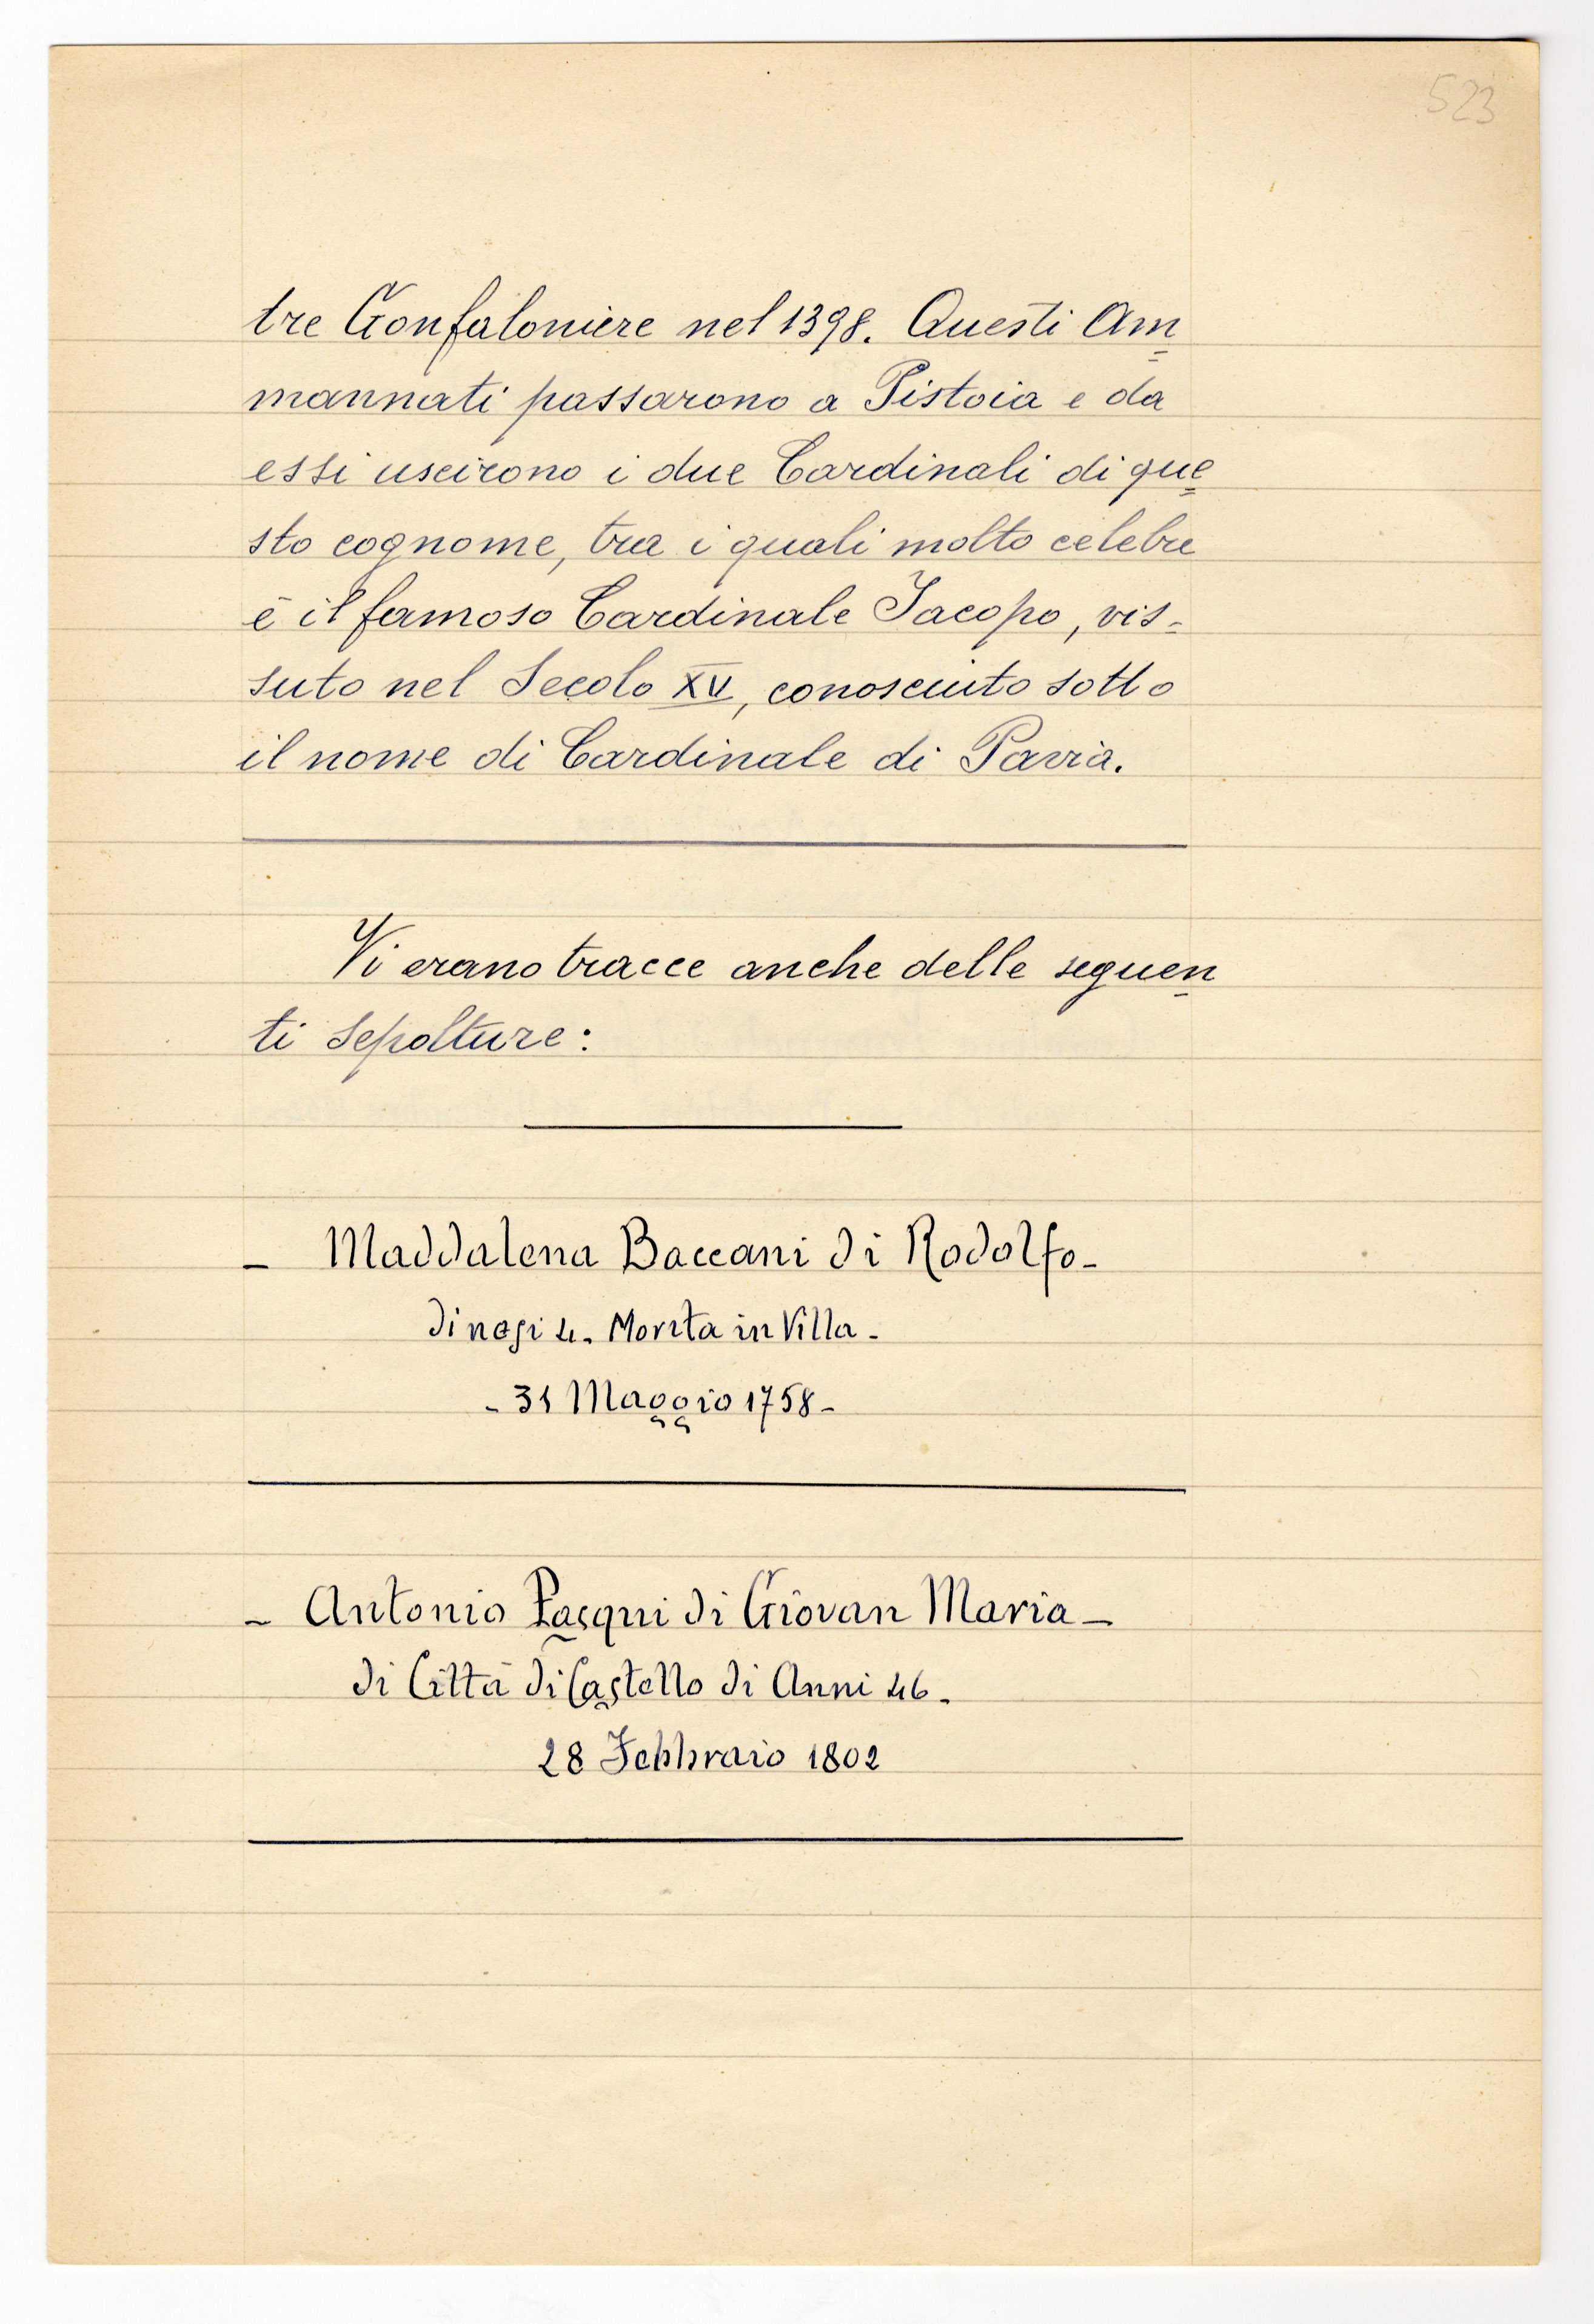 523
tre Gonfaloniere nel 1398. Questi Am=
mannati passarono a Pistoia e da
essi uscirono i due Cardinali di que=
sto cognome, tra i quali molto celebre
è il famoso Cardinale Jacopo, vis=
suto nel Secolo XV, conosciuto sotto
il nome di Cardinale di Pavia.
Vi erano tracce anche delle seguen-
ti Sepolture:
- Maddalena Baccani di Rodolfo -
di mesi 4. Morta in Villa -
- 31 Maggio 1758 -
- Antonio Pasqui di Giovan Maria -
di Città di Castello di Anni 46.
28 Febbraio 1802